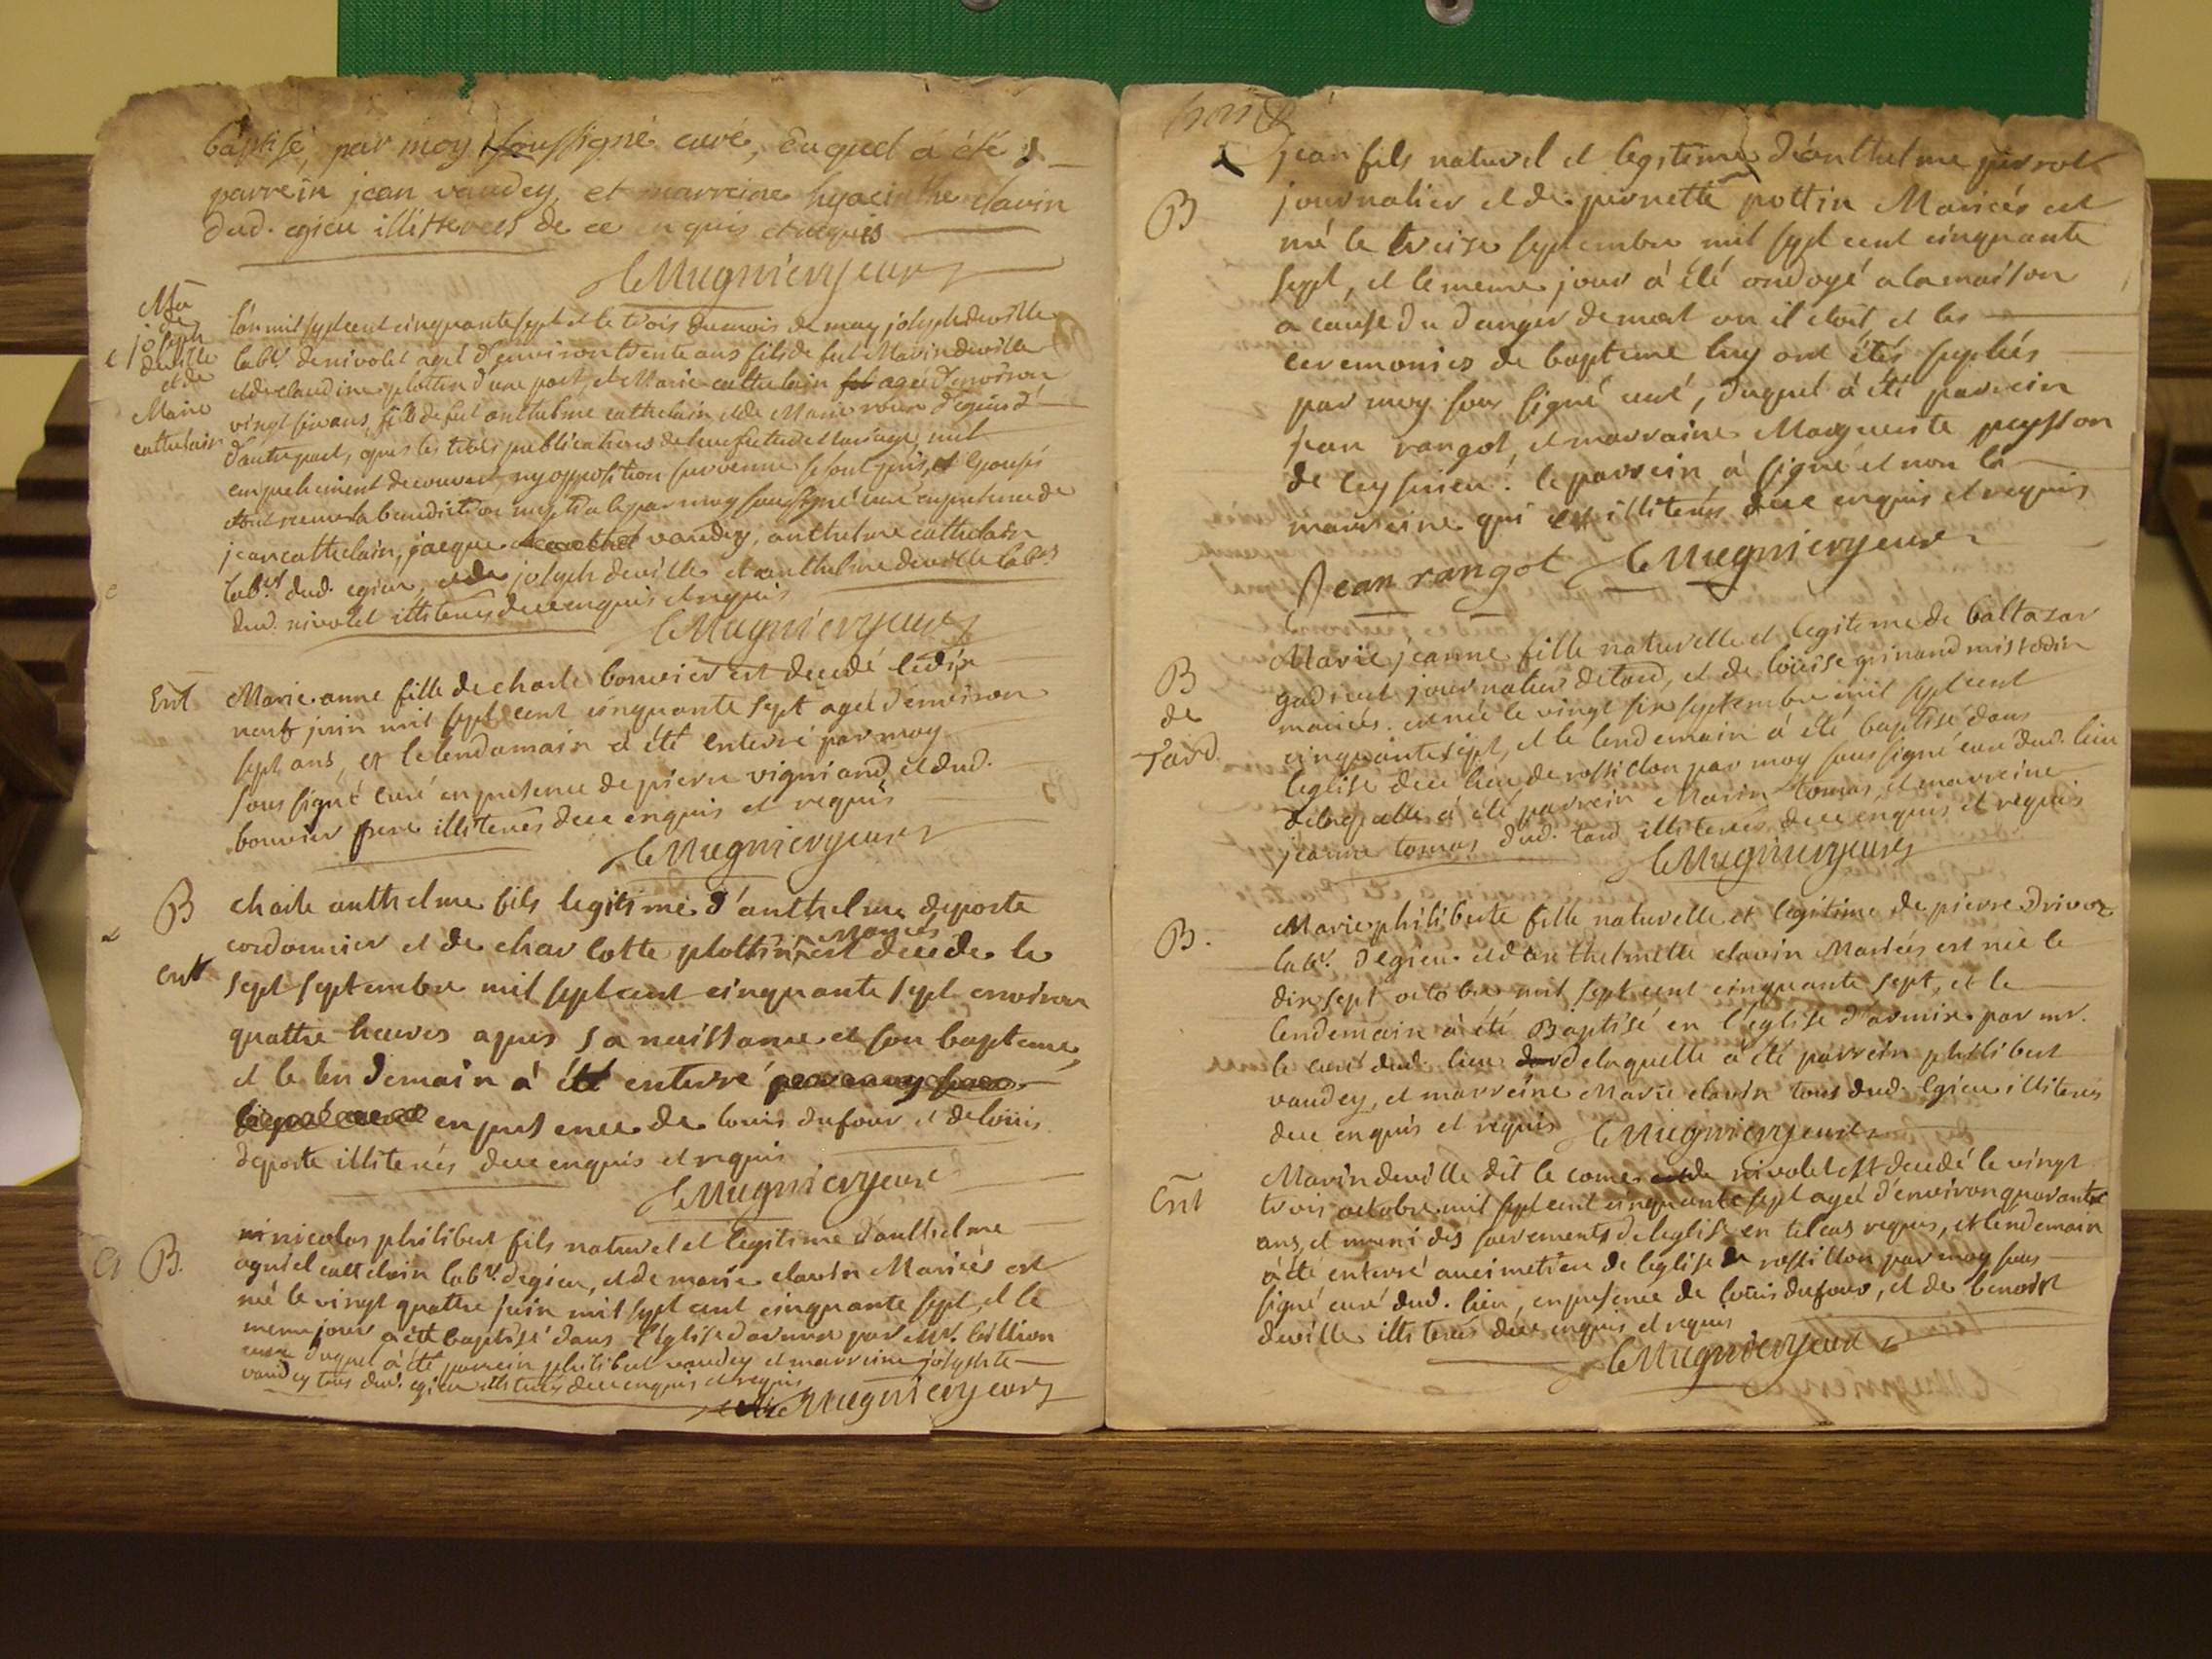 baptisé, par moy soussigné curé, duquel a été
parrein jean vaudey, et marreine hyacinthe clavin
dud. egieu illitterees de ce enquis et requis
C Mugniery curé
Ma
de
joseph
deville
et de
Marie
cattelain
l'an mil sept cent cinquante sept et le trois du mois de may joseph deville
labr. de nivolet ageé d'environ trente ans fils de feu Marin deville
et de claudine plottin d'une part, et Marie cattelain ageé d'environ
vingt six ans, fille de feu anthelme cattelain et de Marie d'egieu
d'autre part, apres les trois publications de leur futur Mariage, nul
empechement decouvert, ny opposition survenue se sont pris et epousés
et ont receu la benediction nuptiale par moy soussigné curé en presence de
jean cattelain, jacque vaudey, anthelme cattelain
labrs dud. egieu, et de joseph deville et anthelme deville labrs
dud. nivolet illiterés de ce enquis et requis
C Mugniery curé
Ent
Marie anne fille de charle bouvier est decedé le dix
neuf juin mil sept cent cinquante sept ageé d'environ
sept ans, et le lendemain a été enterré par moy
sous signé curé en presence de pierre vigniand, et dud.
bouvier pere illiterés de ce enquis et requis
C Mugniery curé
B
Ent
charle anthelme fils legitime d'anthelme deporte
cordonnier et de charlotte plottin Mariés est decedé le
sept septembre mil sept cent cinquante sept environ
quattre heures apres sa naissance et son bapteme,
et le lendemain à été enterré
en presence de louis dufour et de louis
deporte illiterés de ce enquis et requis
C Mugniery curé
B.
nicolas philibert fils naturel et legitime d'anthelme
cattelain labr. d'egieu, et de marie clavin Mariés est
né le vingt quattre juin mil sept cent cinquante sept, et le
meme jour a été baptisé dans l'église d'armix par Mr. billion
curé duquel à été parrein philibert vaudey et marreine josephte
vaudey tous dud. egieu illiterés de ce enquis et requis
C Mugniery curé
B
jean fils naturel et legitime d'anthelme perrot
journalier et de pernette pottin Mariés est
né le treise septembre mil sept cent cinquante
sept, et le meme jour à été ondoyé a la maison
a cause du danger de mort ou il etoit, et les
ceremonies de bapteme luy ont étés supléés
par moy sous signé curé, duquel à été parrein
jean rangot, et marraine Marguerite peysson
de leyssieu. le parrein à signé et non la
marreine qui est illiterés de ce enquis et requis
Jean rangot C Mugniery curé
B
de
Tard.
Marie jeanne fille naturelle et legitime de baltazar
journalier de tard, et de loüise
mariés. est née le vingt six septembre mil sept cent
cinquante sept, et le lendemain à été baptisé dans
leglise de ce lieu de rossillon par moy sous signé curé dud. lieu
delaquelle à été parrein Marin tomas, et marreine
jeanne tomas dud. tard illiterés de ce enquis et requis
C Mugniery curé
B.
Marie philiberte fille naturelle et legitime de pierre drivoz
labr. d'egieu. et d'anthelmette clavin Mariés est née le
dix sept octobre mil sept cent cinquante sept, et le
lendemain à été Baptisé en l'église d'armix par mr.
le curé dud. lieu delaquelle à été parrein philibert
vaudey, et marreine Marie clavin tous dud. egieu illiterés
de ce enquis et requis C Mugniery curé
Ent
Marin deville dit le comes nivolet est decedé le vingt
trois octobre mil sept cent cinquante sept ageé d'environ quarante
ans, et muni des sacrements de leglise en tel cas requis, et lendemain
à été enterré au cimetiere de leglise de rossillon par moy sous
signé curé dud. lieu, en presence de loüis dufour, et de benoist
deville illiterés de ce enquis et requis
C Mugniery curé